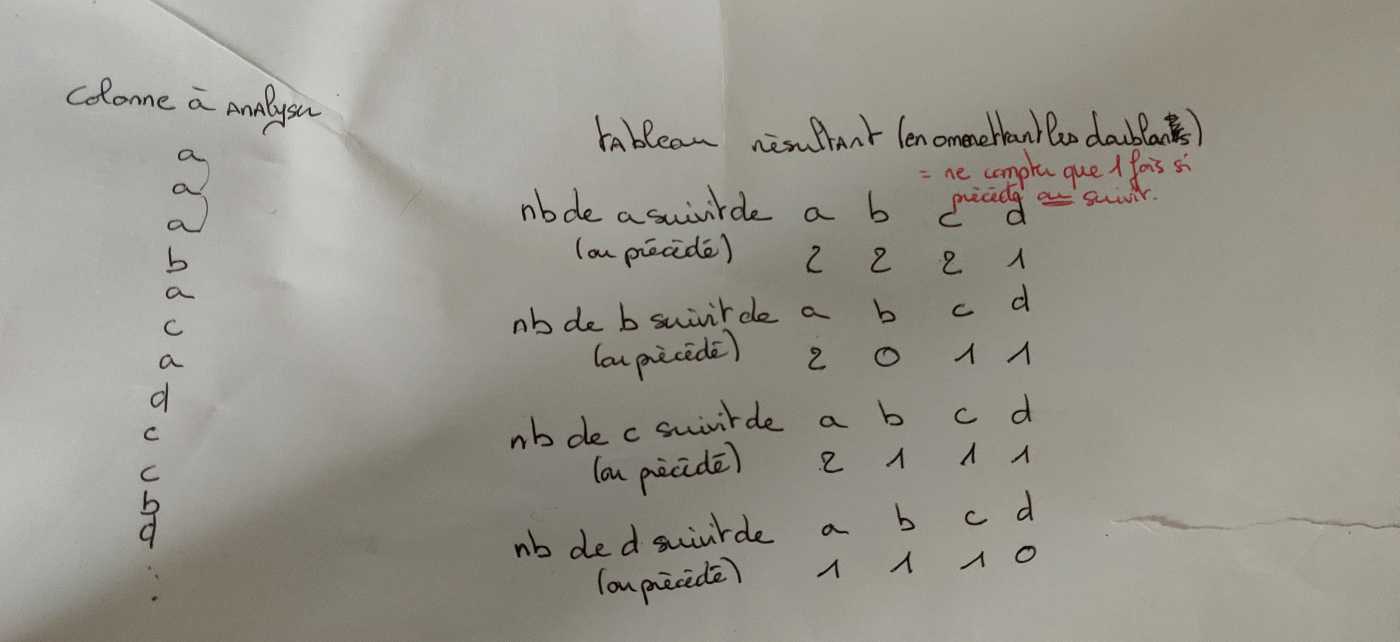 Colonne à ANAlyser
a
a
a
b
a
c
a
d
c
c
b
d
:
tAbleau résultAnt (en omenettant les doublants)
= ne compter que 1 fois si
précédé ou suivit.
nb de a suivit de a b c d
(ou précédé) 2 2 2 1
nb de b suivit de a b c d
(ou précédé) 2 0 1 1
nb de c suivit de a b c d
(ou précédé) 2 1 1 1
nb de d suivit de a b c d
(ou précédé) 1 1 1 0